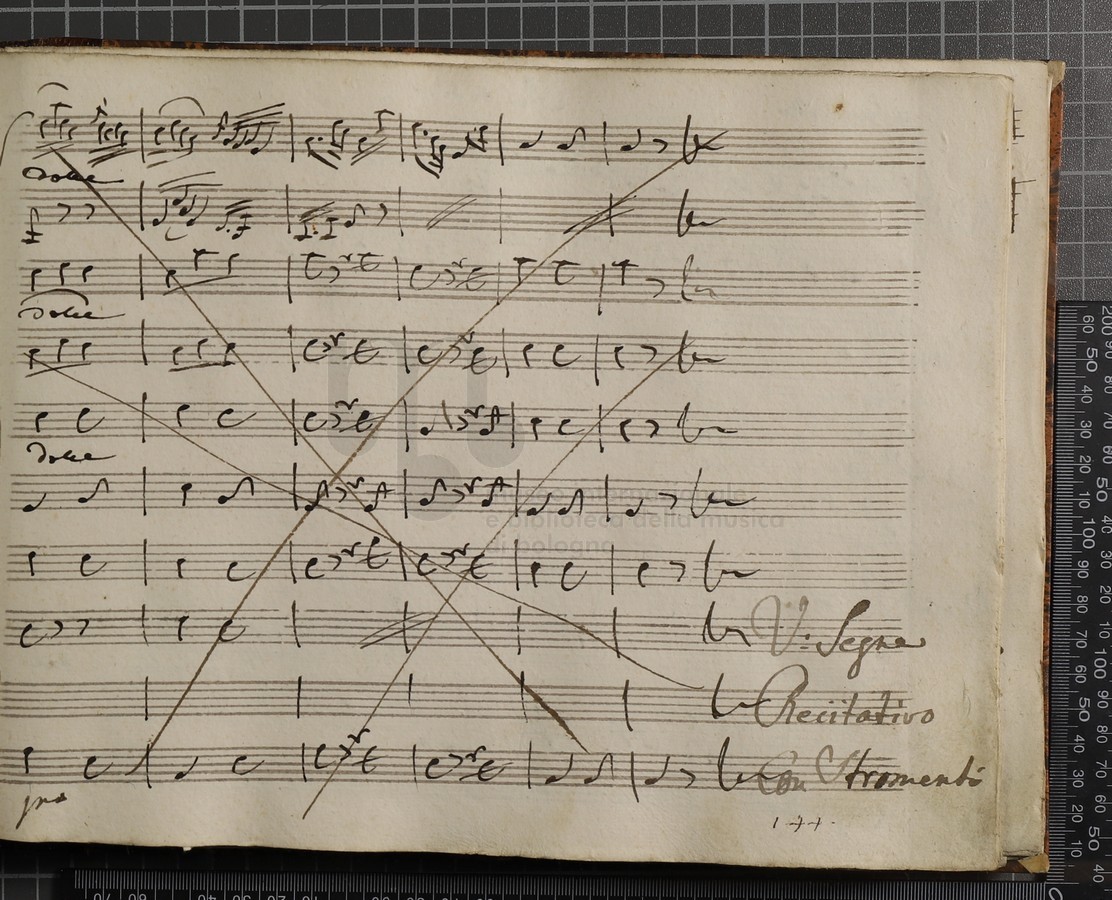 Dolce
Dolce
Dolce
museo internazionale
e biblioteca della musica
di bologna
V: Segue
Recitativo
Con Stromenti